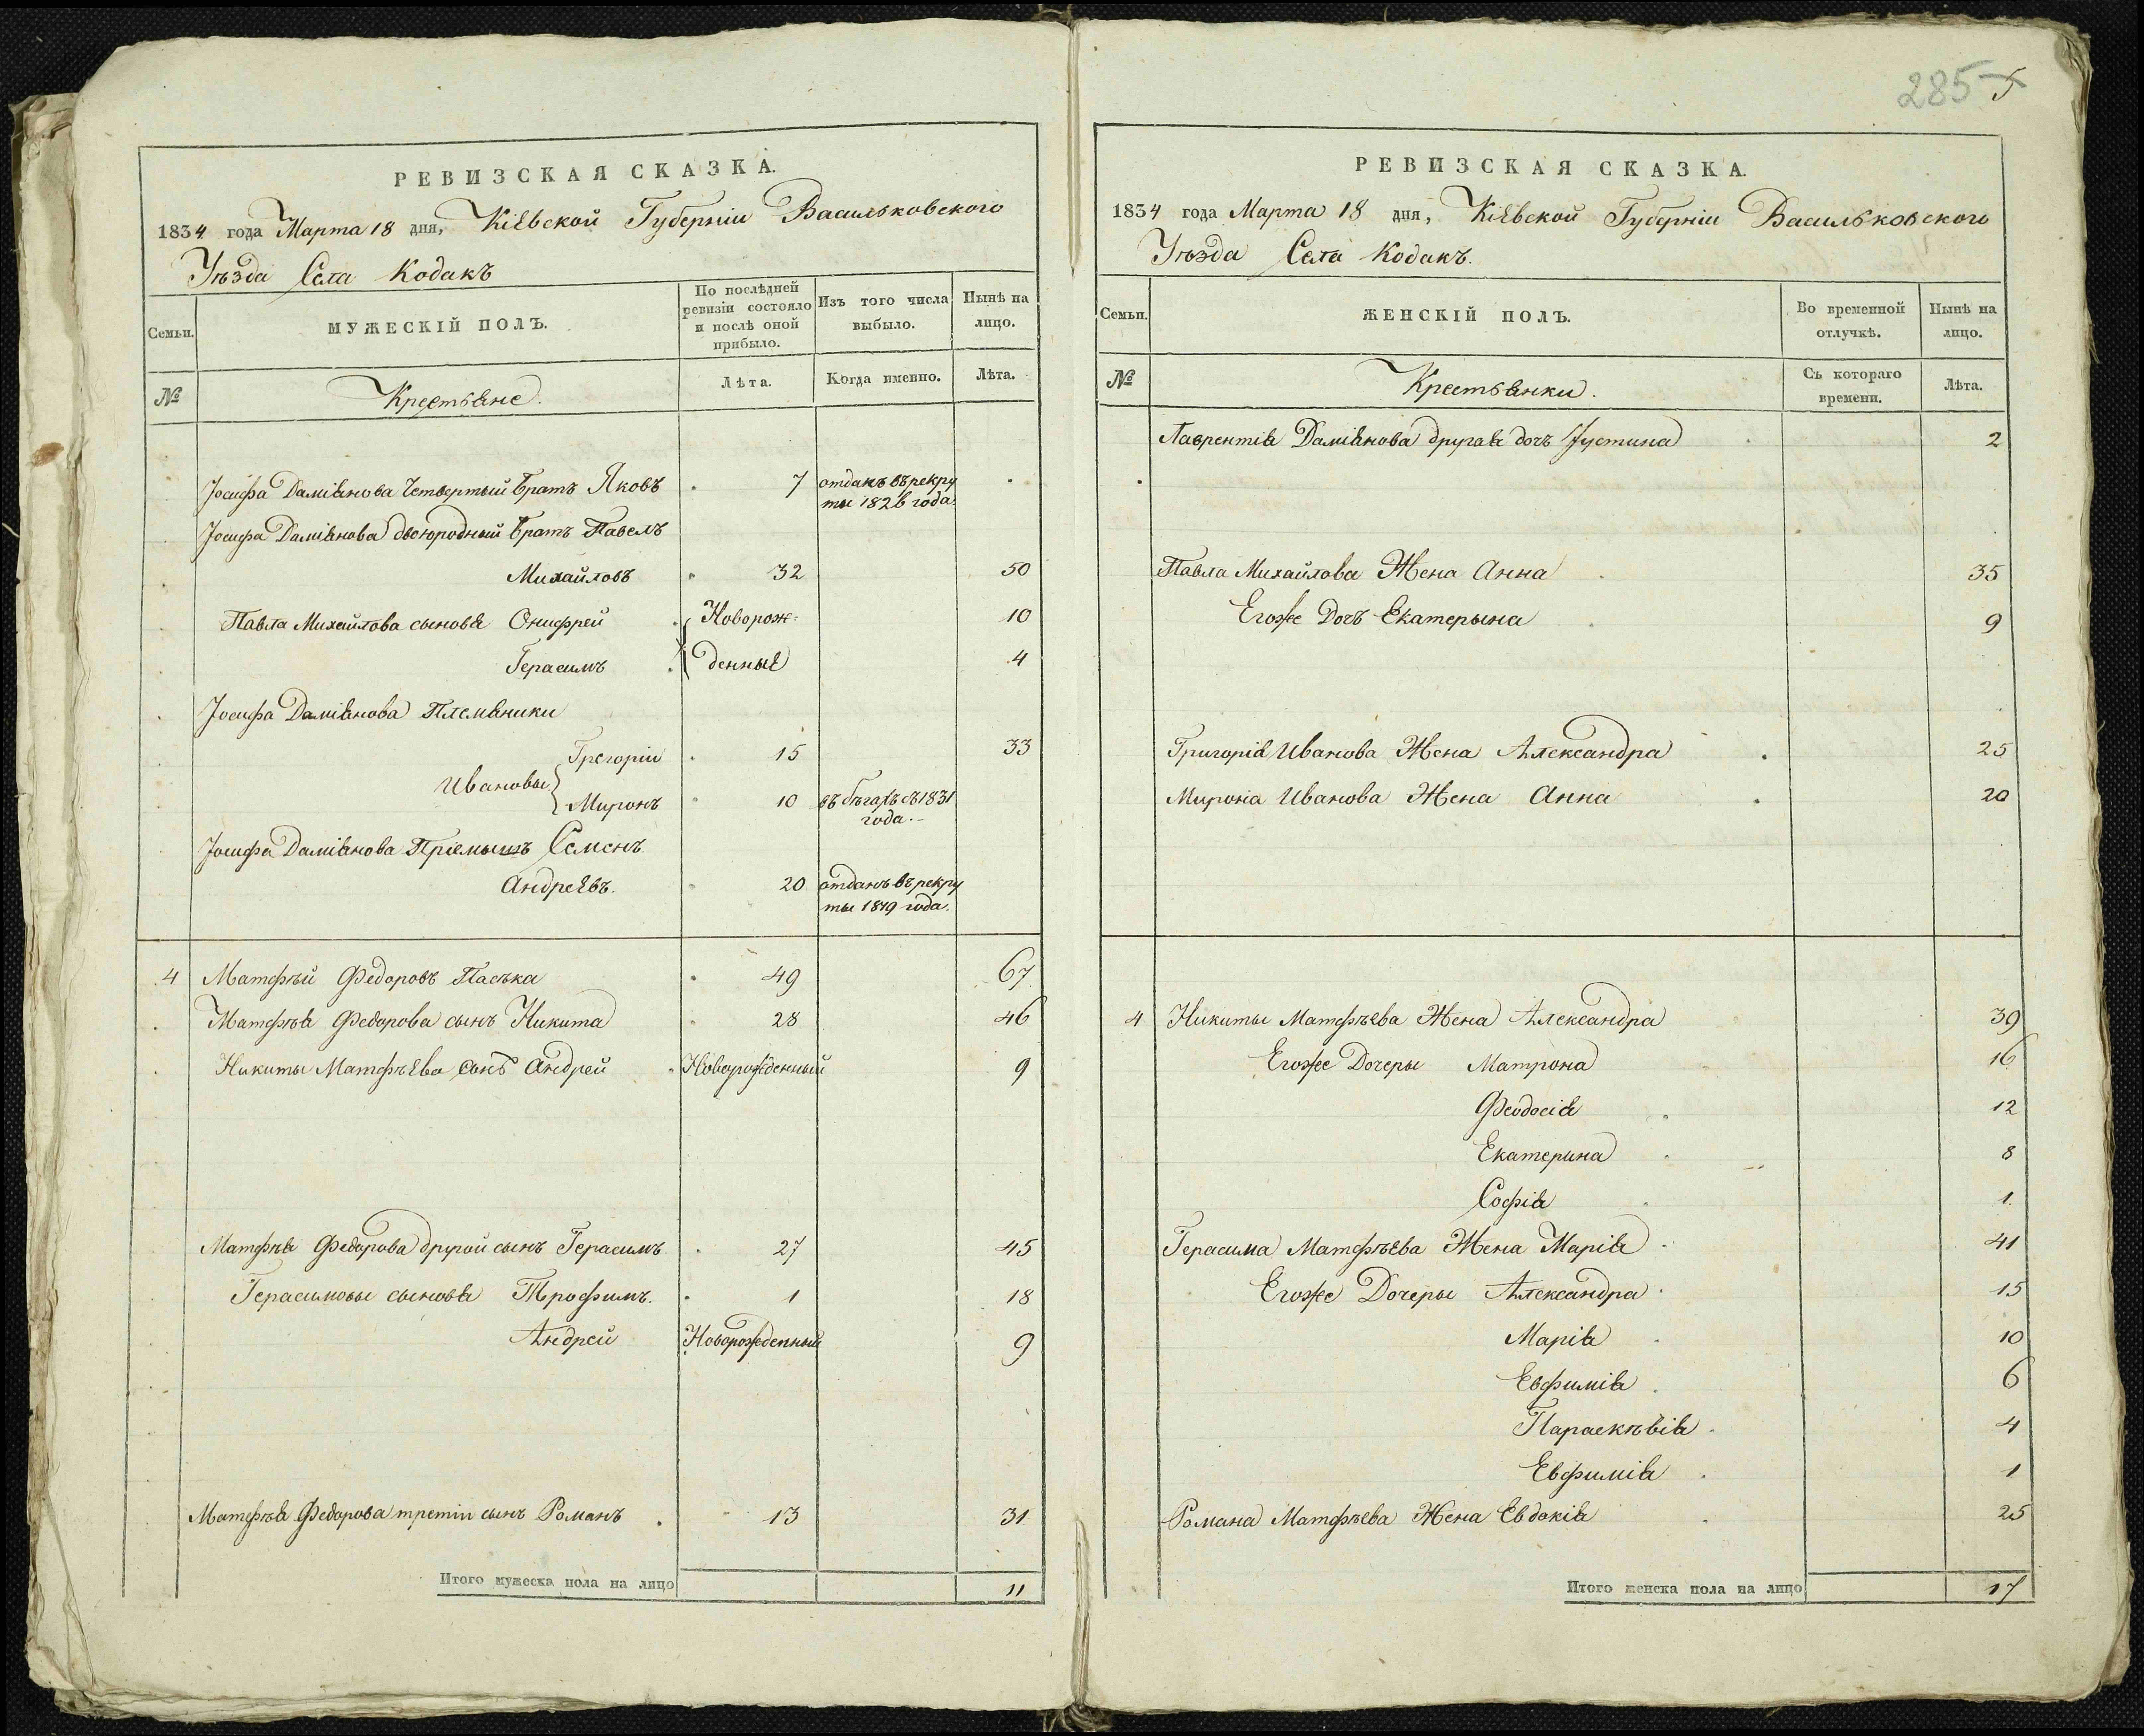 285 5
РЕВИЗСКАЯ СКАЗКА.
1834 года Марта 18 дня, Кіевской Губерніи Васильковскаго
Уѣзда Села Кодакъ
Семьи.
МУЖЕСКІЙ ПОЛЪ.
По послѣдней ревизіи состояло и послѣ оной прибыло.
Изъ того числа выбыло.
Нынѣ на лицо.
№
Крестьяне.
Лѣта.
Когда именно.
Лѣта.
Іосифа Даміянова Четвертый братъ Яковъ 7 отданъ въ рекру
ты 182 года.
Іосифа Даміянова двоюродный братъ Павелъ
Михайловъ 32 50
Павла Михайлова сыновья Онифрей Новорож- 10
Герасимъ денные 4
Іосифа Даміянова Племяники
Грегоріи 15 33
Ивановы
Миронъ 10 въ бѣгахъ съ 1831
года.
Іосифа Даміянова Пріемышъ Семенъ
Андреевъ. 20 отданъ въ рекру
ты 1819 года.
4 Матфѣй Федоровъ Паська 49 67
Матфѣя Федорова сынъ Никита 28 46
Никиты Матфѣева сынъ Андрей Новорожденный 9
Матфѣя Федорова другой сынъ Герасимъ 27 45
Герасимовы сыновья Трофимъ. 1 18
Андрей Новорожденный 9
Матфѣя Федорова третіи сынъ Романъ 13 31
Итого мужеска пола на лицо 11
РЕВИЗСКАЯ СКАЗКА.
1834 года Марта 18 дня, Кіевской Губерніи Васильковского
Уѣзда Села Кодакъ.
Семьи.
ЖЕНСКІЙ ПОЛЪ.
Во временной отлучкѣ.
Нынѣ на лицо.
№
Крестьянки.
Съ котораго времени.
Лѣта.
Лаврентія Даміянова другая дочъ Іустина 2
Павла Михайлова Жена Анна 35
Егоже Дочъ Екатерына 9
Григорія Иванова Жена Александра 25
Мирона Иванова Жена Анна 20
4 Никиты Матфѣева Жена Александра 39
Егоже Дочеры Матрона 16
Феодосія 12
Екатерина 8
Софія 1
Герасима Матфѣева Жена Марія 41
Егоже Дочеры Александра 15
Марія 10
Евфимія 6
Параскѣвія 4
Евфимія 1
Романа Матфѣева Жена Евдокія 25
Итого женска пола на лицо 17